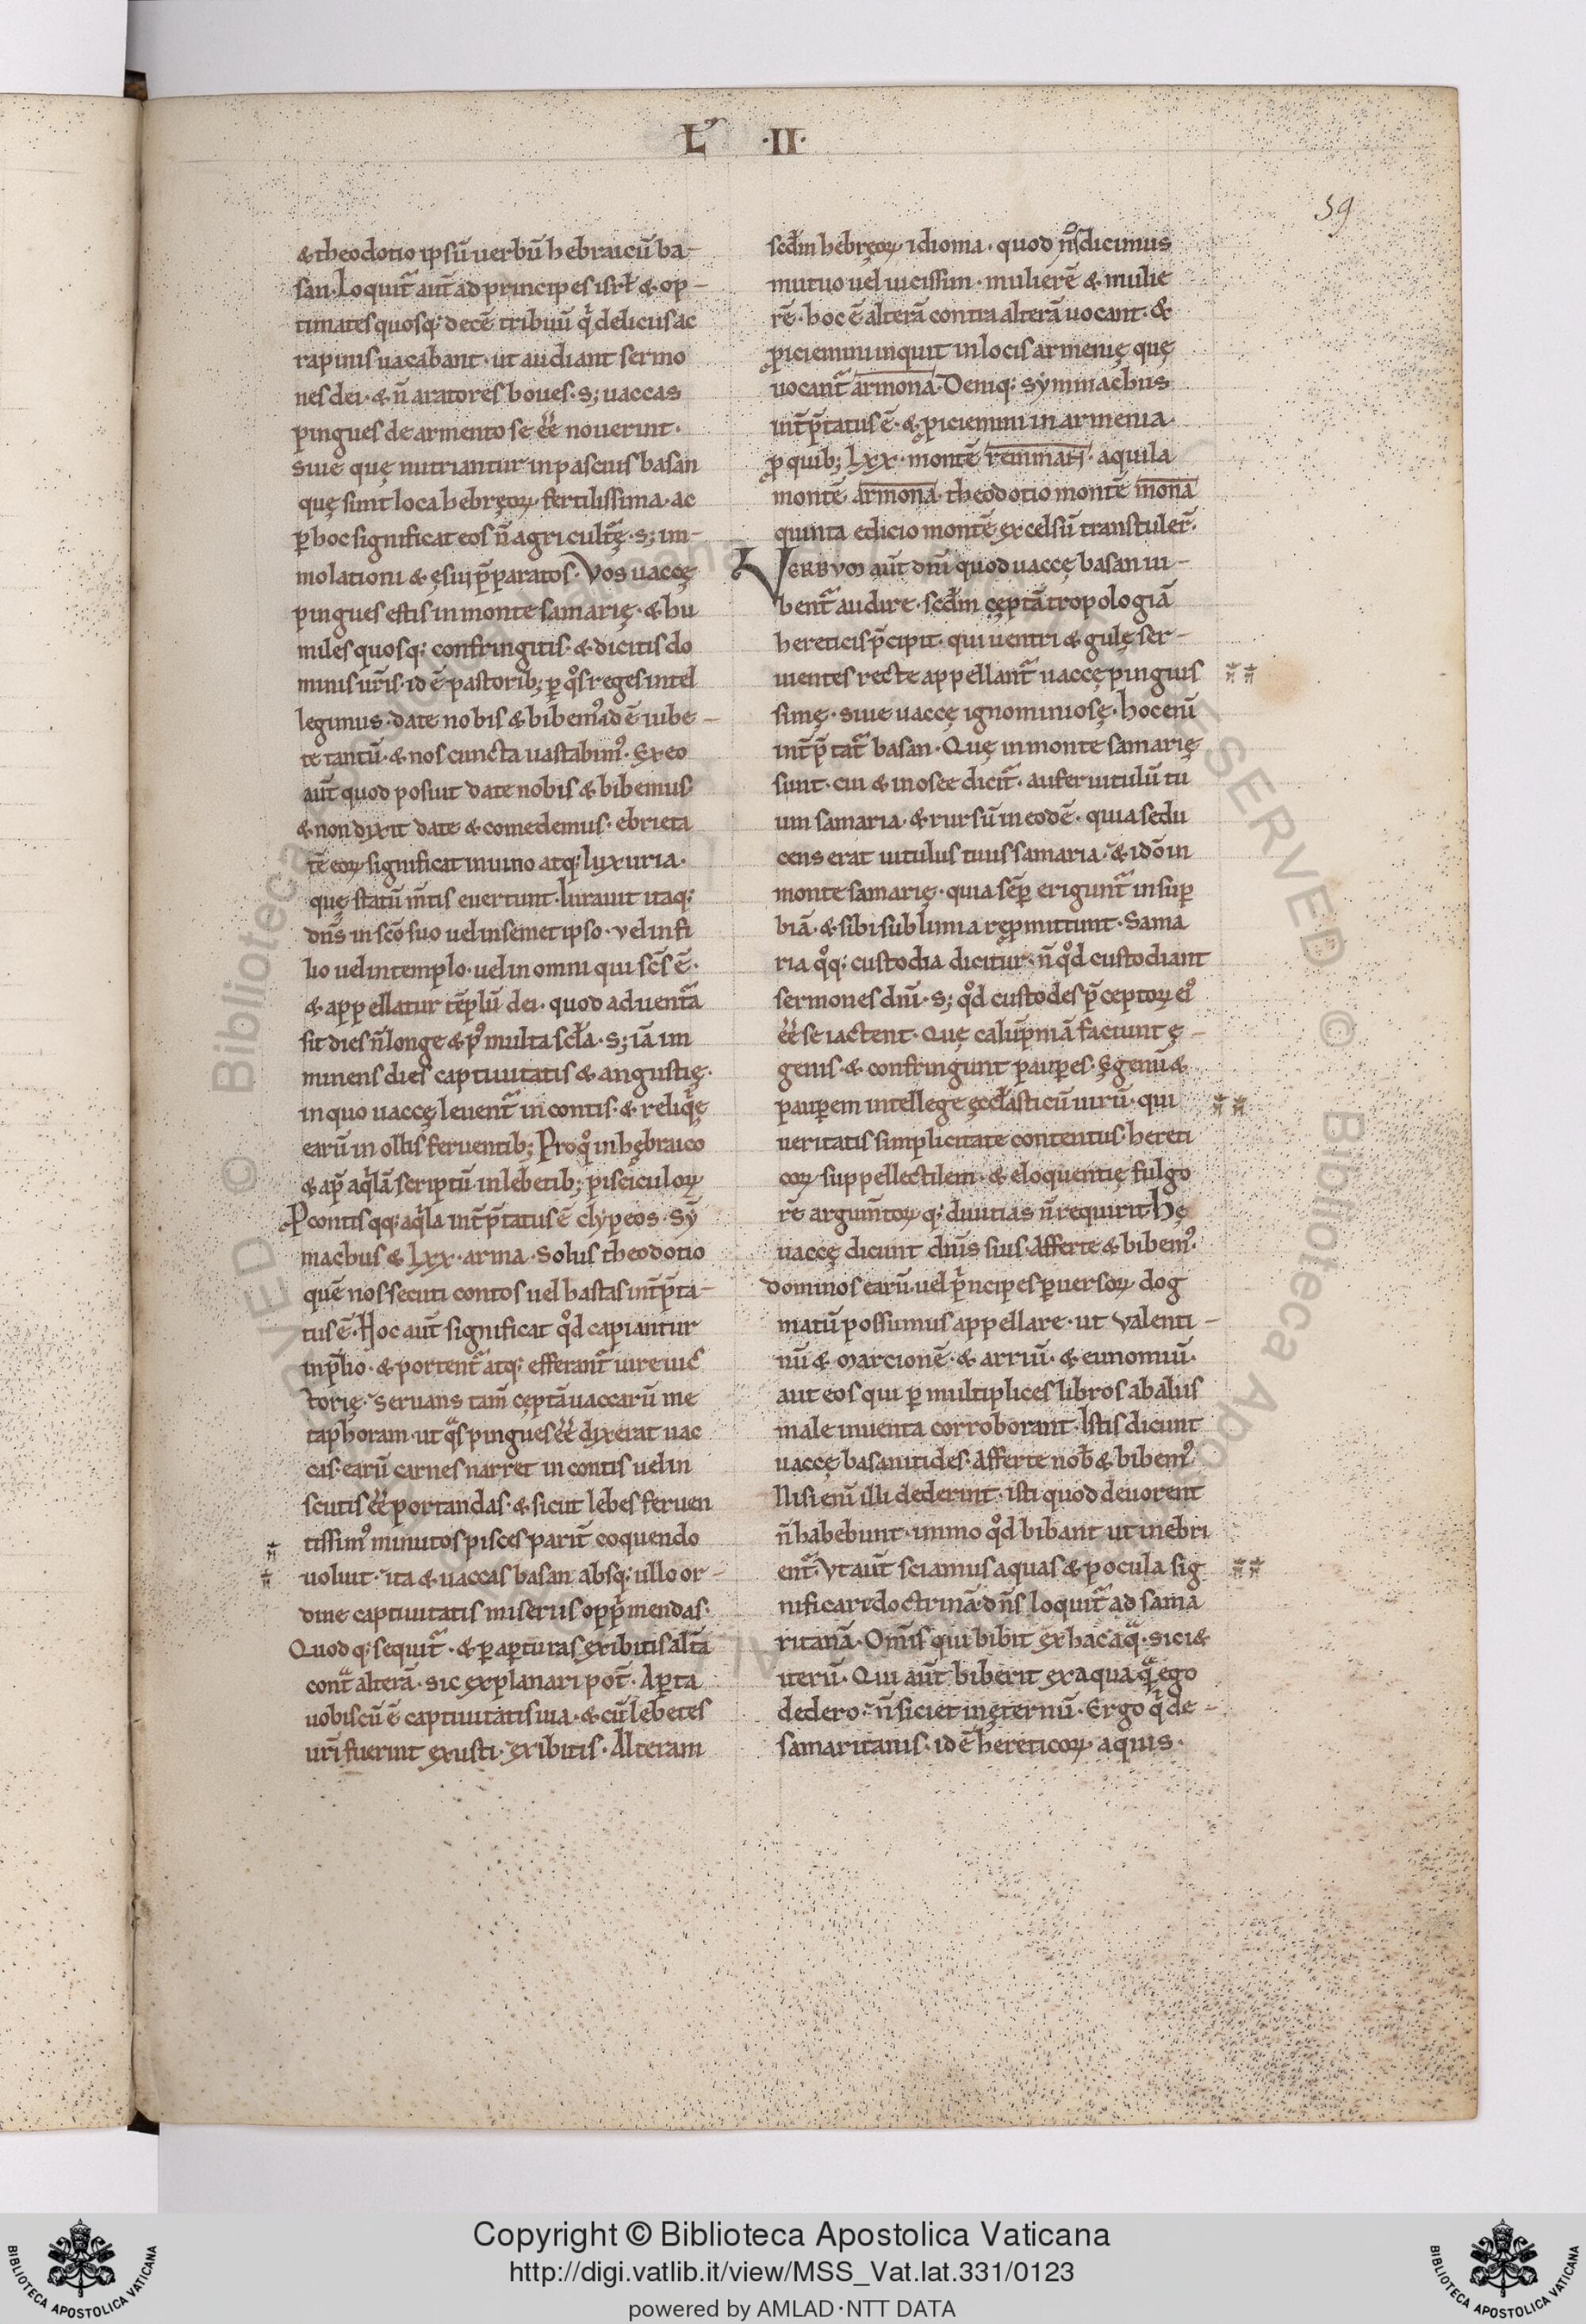 L' ·II·
59
& theodotio ipsū uerbū hebraicū ba-
san. Loquit̄ aut̄ ad principes isrł & op-
timates quosq; decē tribuū q̇ deliciis ac
rapinis uacabant. ut audiant sermo
nes dei. & n̄ aratores boues. s; uaccas
pingues de armento se ēē nouerint.
siue quę nutriantur in pascuis basan
quę sunt loca hebręoꝝ fertilissima. ac
ꝑ hoc significat eos n̄ agricult̄ę. s; im-
molationi & ęsui p̄paratos. Vos uaccę
pingues estis in monte samarię. & hu
miles quosq; confringitis. & dicitis do
minis ur̄is. id ē pastorib; ꝑ q̊s reges intel
legimus. date nobis & bibem⁹. id ē iube-
te tantū. & nos cuncta uastabim⁹. Ex eo
aut̄ quod posuit date nobis & bibemus
& non dixit date & comedemus. ebrieta
tē eoꝝ significat in uino atq; luxuria.
quę statū m̄tis euertunt. Iurauit itaq;
dn̄s in scō suo uel in semet ipso. vel in fi
lio uel in templo. uel in omni qui sc̄s ē.
& appellatur tēplū dei. quod aduent̄a
sit dies n̄ longe & p⁹ multa scła. s; iā im
minens dies captiuitatis & angustię.
in quo uaccę leuent̄ in contis. & reliq̇ę
earū in ollis feruentib; Pro q̊ in hębraico
& ap̄ aq̇lā scriptū in lebetib; pisciculoꝝ
P contis qq; aq̇la int̄p̄tatus ē clypeos. Sȳ
machus & lxx. arma. Solus theodotio
quē nos secuti contos uel hastas int̄p̄ta-
tus ē. Hoc aut̄ significat q̊d capiantur
in p̄lio. & portent̄ atq; efferant̄ iure uic
torię. Seruans tam̄ cęptā uaccarū me
taphoram. ut q̇s pingues ēē dixerat uac
cas. earū carnes narret in contis uel in
scutis ēē portandas. & sicut lebes feruen
tissim⁹ minutos pisces parit̄ coquendo
uoluit. ita & uaccas basan absq; ullo or-
dine captiuitatis miseriis opp̄mendas.
Quodq; sequit̄. & ꝑ aꝑturas exibitis alt̄a
cont̄ alterā. sic explanari pot̄. Aꝑta
uobiscū ē captiuitatis uia. & cū lebetes
ur̄i fuerint exusti. exibitis. Alteram
scđm hebręoꝝ idioma. quod n̊s dicimus
mutuo uel uicissim. mulierē & mulie
rē. hoc ē alterā contra alterā uocant. &
ꝓiciemini inquit in locis armenię quę
uocant̄ armona. Deniq; symmachus
int̄p̄tatus ē. & ꝓiciemini in armenia.
ꝓ quib; lxx. montē remman. aquila
montē armona. theodotio montē mona
quinta edicio montē excelsū transtuler̄.
VERBVM aut̄ dn̄i quod uaccę basan iu-
bent̄ audire. scđm cęptā tropologiā
hereticis p̄cipit. qui uentri & gulę ser-
uientes recte appellant̄ uaccę pinguis
simę. siue uaccę ignominiosę. hoc enī
int̄p̄tat̄ basan. Quę in monte samarię
sunt. cui & in osee dicit̄. aufer uitulū tu
um samaria. & rursū in eodē. quia sedu
cens erat uitulus tuus samaria. & idō in
monte samarię. quia sēꝑ erigunt̄ in suꝑ
biā. & sibi sublimia reꝓmittunt. Sama
ria q̊q; custodia dicitur. n̄ q̊d custodiant
sermones dn̄i. s; q̊d custodes p̄ceptoꝝ ei⁹
ēē se iactent. Quę calūpniā faciunt ę-
genis. & confringunt pauꝑes. Egenū &
pauꝑem intellege ęccłasticū uirū. qui
ueritatis simplicitate contentus. hereti
coꝝ suppellectilem. & eloquentię fulgo
rē argum̄toꝝq; diuitias n̄ requirit. Hę
uaccę dicunt dn̄is suis. Afferte & bibem⁹.
dominos earū uel p̄ncipes ꝑuersoꝝ dog
matū possumus appellare. ut Valenti-
nū & Marcionē. & arriū. & eunomiū.
aut eos qui ꝑ multiplices libros ab aliis
male inuenta corroborant. Istis dicunt
uaccę basanitides. Afferte nob̄ & bibem⁹
Nisi enī illi dederint. isti quod deuorent
n̄ habebunt. immo q̊d bibant ut inebri
ent̄. Vt aut̄ sciamus aquas & pocula sig
nificare doctrinā. dn̄s loquit̄ ad sama
ritanā. Om̄is qui bibit ex hac aq̄. siti&
iterū. Qui aut̄ biberit ex aqua q̄ ego
dedero. n̄ siciet in ęternū. Ergo q̇ de-
samaritanis. id ē hereticoꝝ aquis.
Copyright © Biblioteca Apostolica Vaticana
http://digi.vatlib.it/view/MSS_Vat.lat.331/0123
powered by AMLAD·NTT DATA
BIBLIOTECA APOSTOLICA VATICANA
BIBLIOTECA APOSTOLICA VATICANA